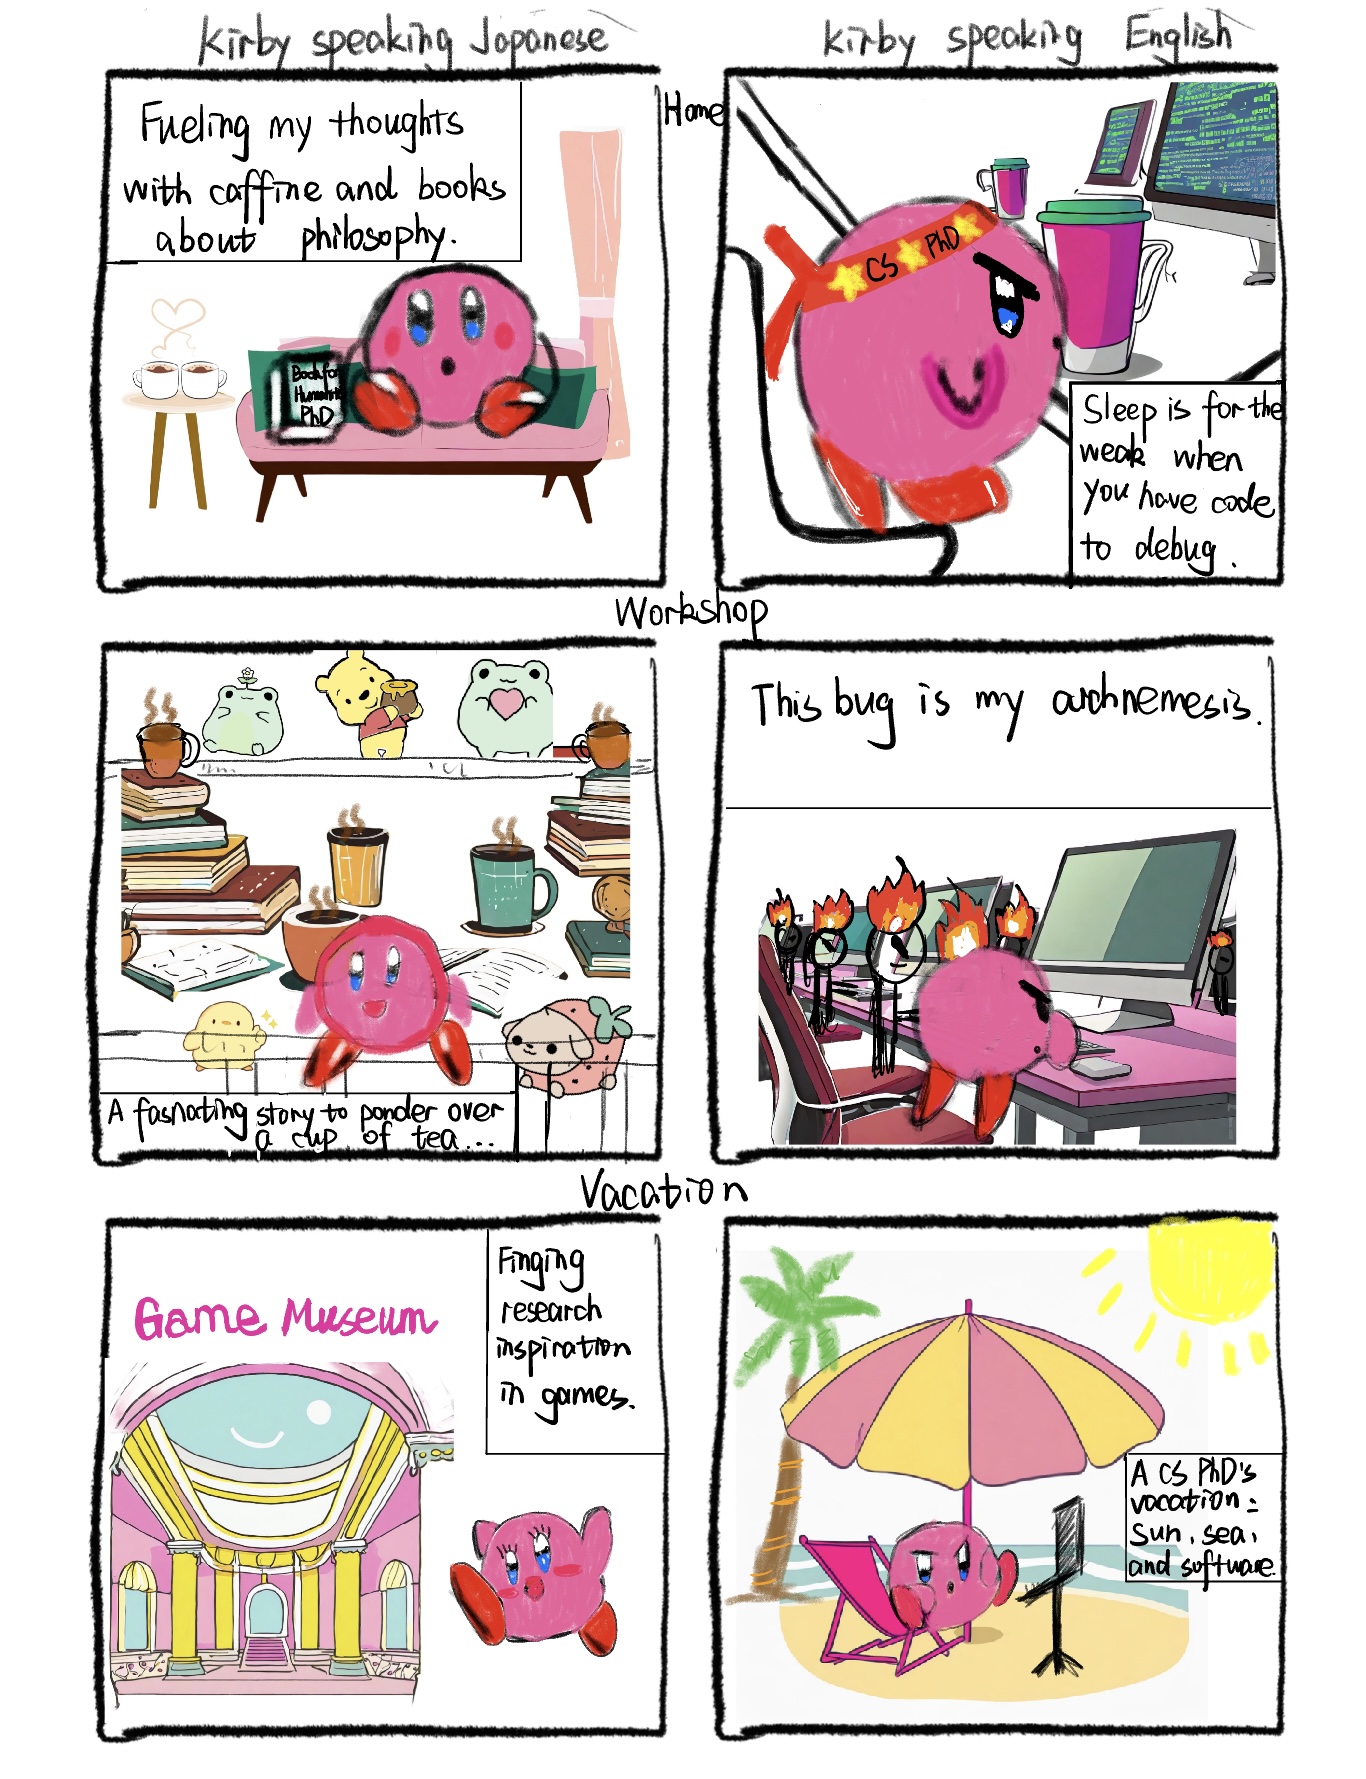 Kirby speaking Japanese
Kirby speaking English
Home
Fueling my thoughts
with caffine and books
about philosophy.
Book for
Humanities
PhD
CS PhD
Sleep is for the
weak when
you have code
to debug.
Workshop
A fasnating story to ponder over
a cup of tea...
This bug is my archnemesis.
Vacation
Game Museum
Finging
research
inspiration
in games.
A CS PhD's
vacation:
Sun, sea,
and software.